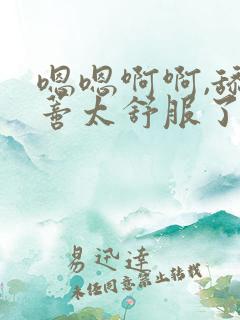 嗯嗯啊啊,舔
善太舒服了
易迅達
未经同意禁止转载